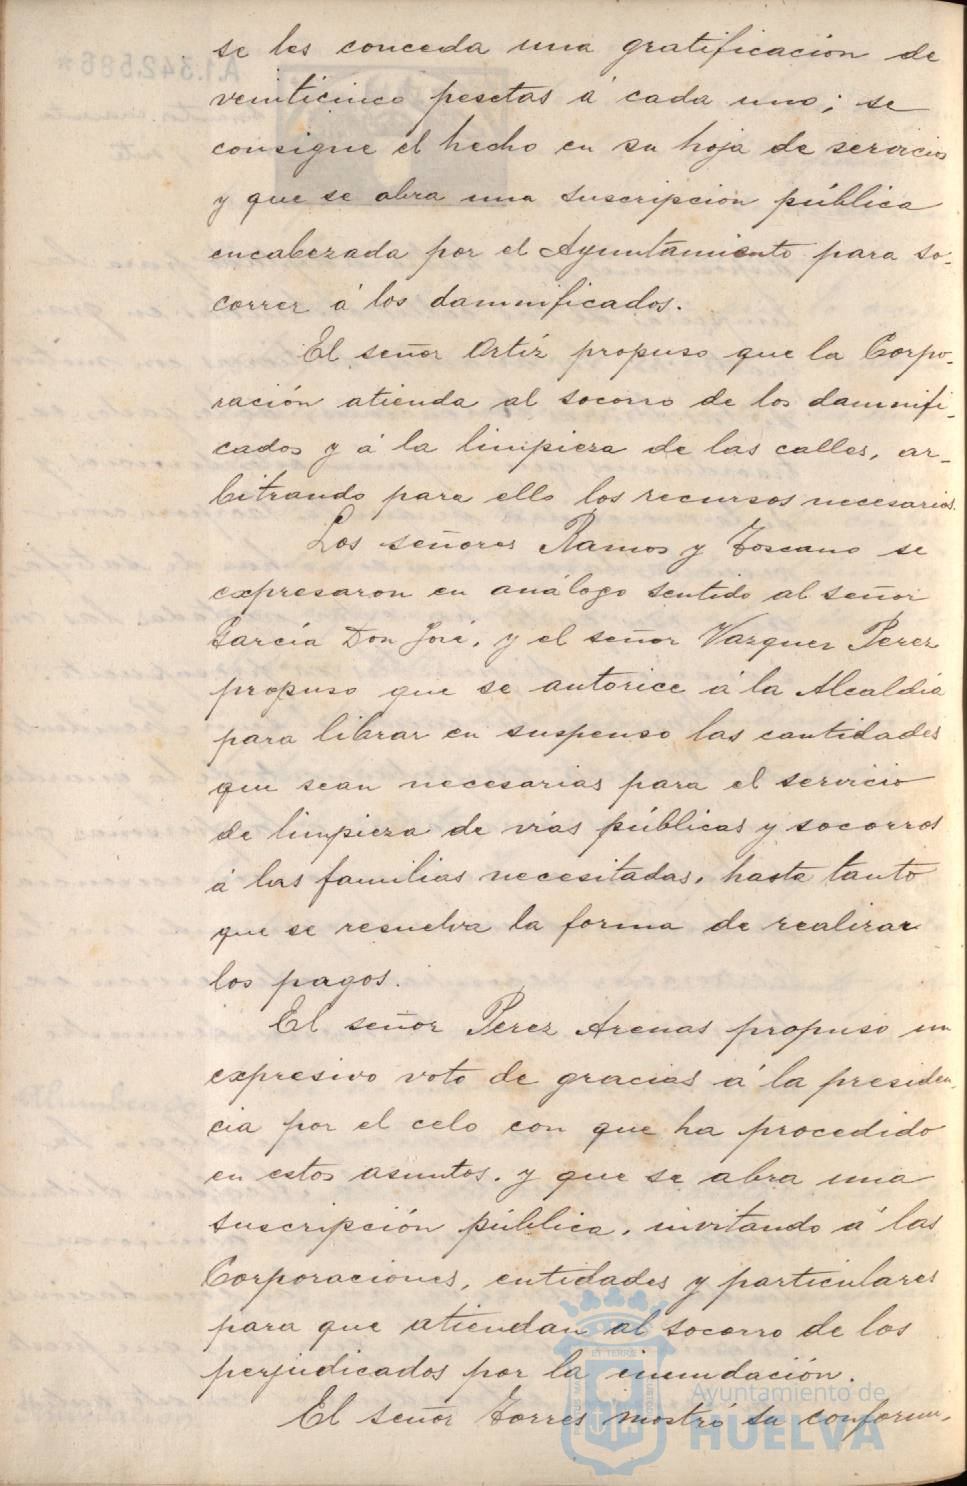 se les conceda una gratificación de
veinticinco pesetas á cada uno; se
consigne el hecho en su hoja de servicios
y que se abra una suscripción pública
encabezada por el Ayuntamiento para so-
correr á los damnificados.
El señor Ortíz propuso que la Corpo-
ración atienda al socorro de los damnifi-
cados y á la limpieza de las calles, ar-
bitrando para ello los recursos necesarios.
Los señores Ramos y Toscano se
expresaron en análogo sentido al señor
García Don José, y el señor Vazquez Perez
propuso que se autorice á la Alcaldía
para librar en suspenso las cantidades
que sean necesarias para el servicio
de limpieza de vías públicas y socorros
á las familias necesitadas, hasta tanto
que se resuelva la forma de realizar
los pagos.
El señor Perez Arenas propuso un
expresivo voto de gracias á la presiden-
cia por el celo con que ha procedido
en estos asuntos, y que se abra una
suscripción pública, invitando á las
Corporaciones, entidades y particulares
para que atiendan al socorro de los
perjudicados por la inundación.
El señor Torres mostró su conformi-
Ayuntamiento de
HUELVA
A.1.342.586*